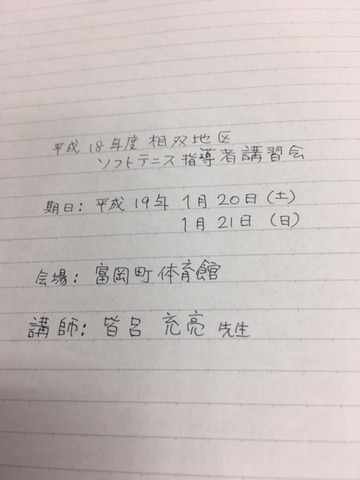 平成18年度 相双地区
ソフトテニス指導者講習会
期日: 平成19年 1月20日(土)
1月21日(日)
会場: 富岡町体育館
講師: 皆呂 充亮 先生